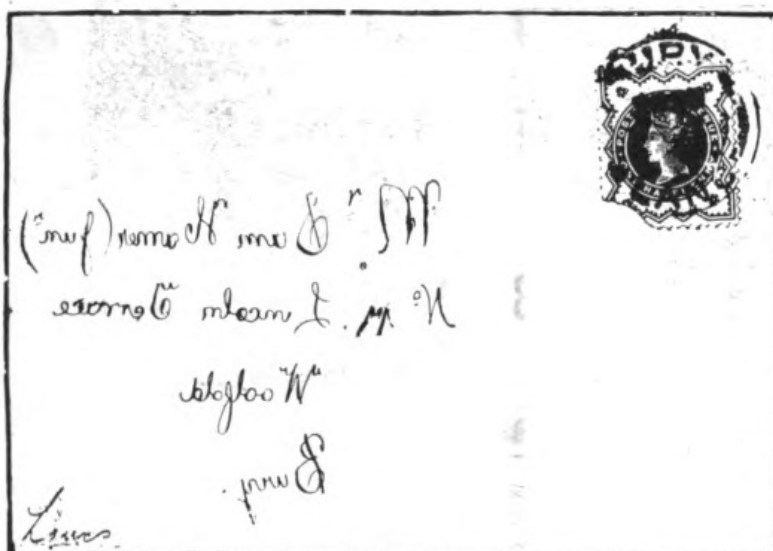 Mr. Sam Hamer (Junr)
No Lincoln Terrace
Woolfold
Bury.
Lancs